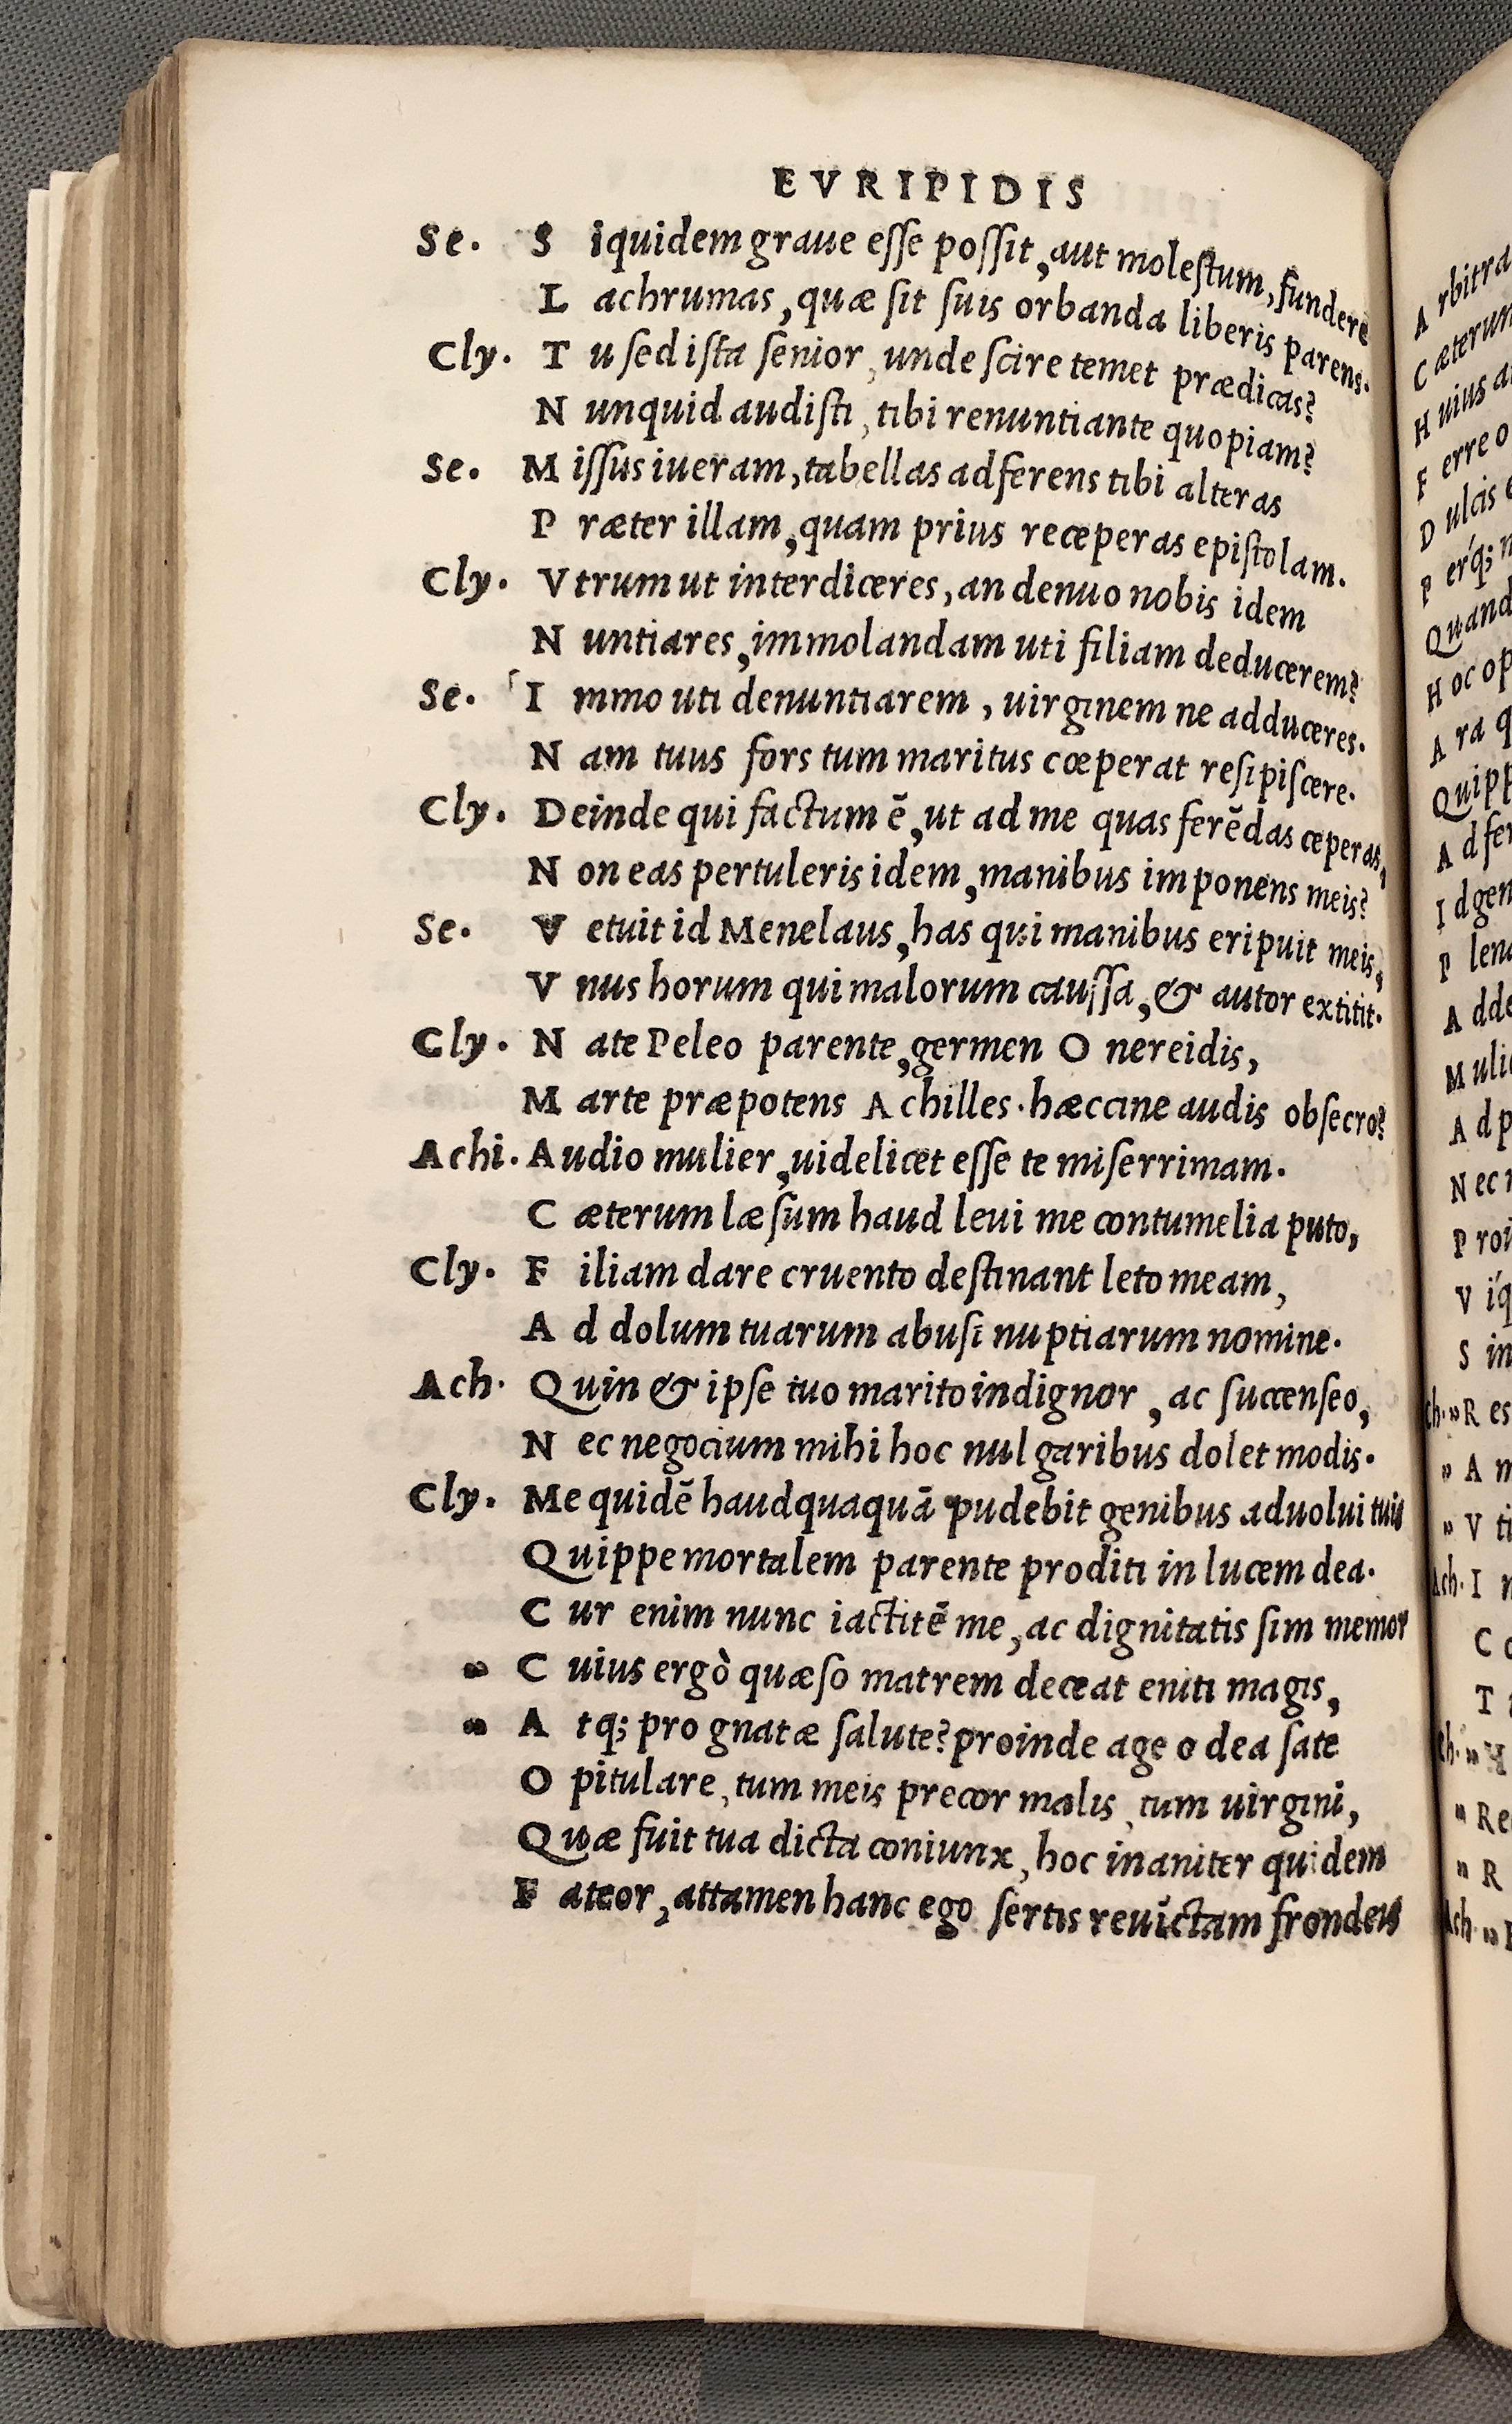 EVRIPIDIS
Se. S iquidem graue esse possit, aut molestum, fundere
L achrumas, quæ sit suis orbanda liberis parens.
Cly. T u sed ista senior, unde scire temet prædicas?
N unquid audisti, tibi renuntiante quopiam?
Se. M issus iueram, tabellas adferens tibi alteras
P ræter illam, quam prius receperas epistolam.
Cly. V trum ut interdiceres, an denuo nobis idem
N untiares, immolandam uti filiam deducerem?
Se. I mmo uti denuntiarem, uirginem ne adduceres.
N am tuus fors tum maritus cœperat resipiscere.
Cly. Deinde qui factum ē, ut ad me quas ferēdas ceperas,
N on eas pertuleris idem, manibus imponens meis?
Se. V etuit id Menelaus, has qui manibus eripuit meis,
V nus horum qui malorum caussa, & autor extitit.
Cly. N ate Peleo parente, germen O nereidis,
M arte præpotens A chilles. hæccine audis obsecro?
Achi. A udio mulier, uidelicet esse te miserrimam.
C æterum læsum haud leui me contumelia puto,
Cly. F iliam dare cruento destinant leto meam,
A d dolum tuarum abusi nuptiarum nomine.
Ach. Quin & ipse tuo marito indignor, ac succenseo,
N ec negocium mihi hoc nulgaribus dolet modis.
Cly. Me quidē haudquaquā pudebit genibus aduolui tuis
Quippe mortalem parente proditi in lucem dea.
C ur enim nunc iactitē me, ac dignitatis sim memor
» C uius ergò quæso matrem deceat eniti magis,
» A tq; pro gnatæ salute? proinde age o dea sate
O pitulare, tum meis precor malis, tum uirgini,
Quæ fuit tua dicta coniunx, hoc inaniter quidem
F ateor, attamen hanc ego sertis reuīctam frondeis
A rbitra
C æterum
H uius
F erre o
D ulcis
P erq́;
Quand
H oc op
A ra q
Quipp
A dfer
I d gen
P len
A dde
M uli
A d p
N ec
P roi
V íq
S in
ch. » R es
» A m
» V ti
Ach. I
C
T
» H
» Re
» R
Ach. »